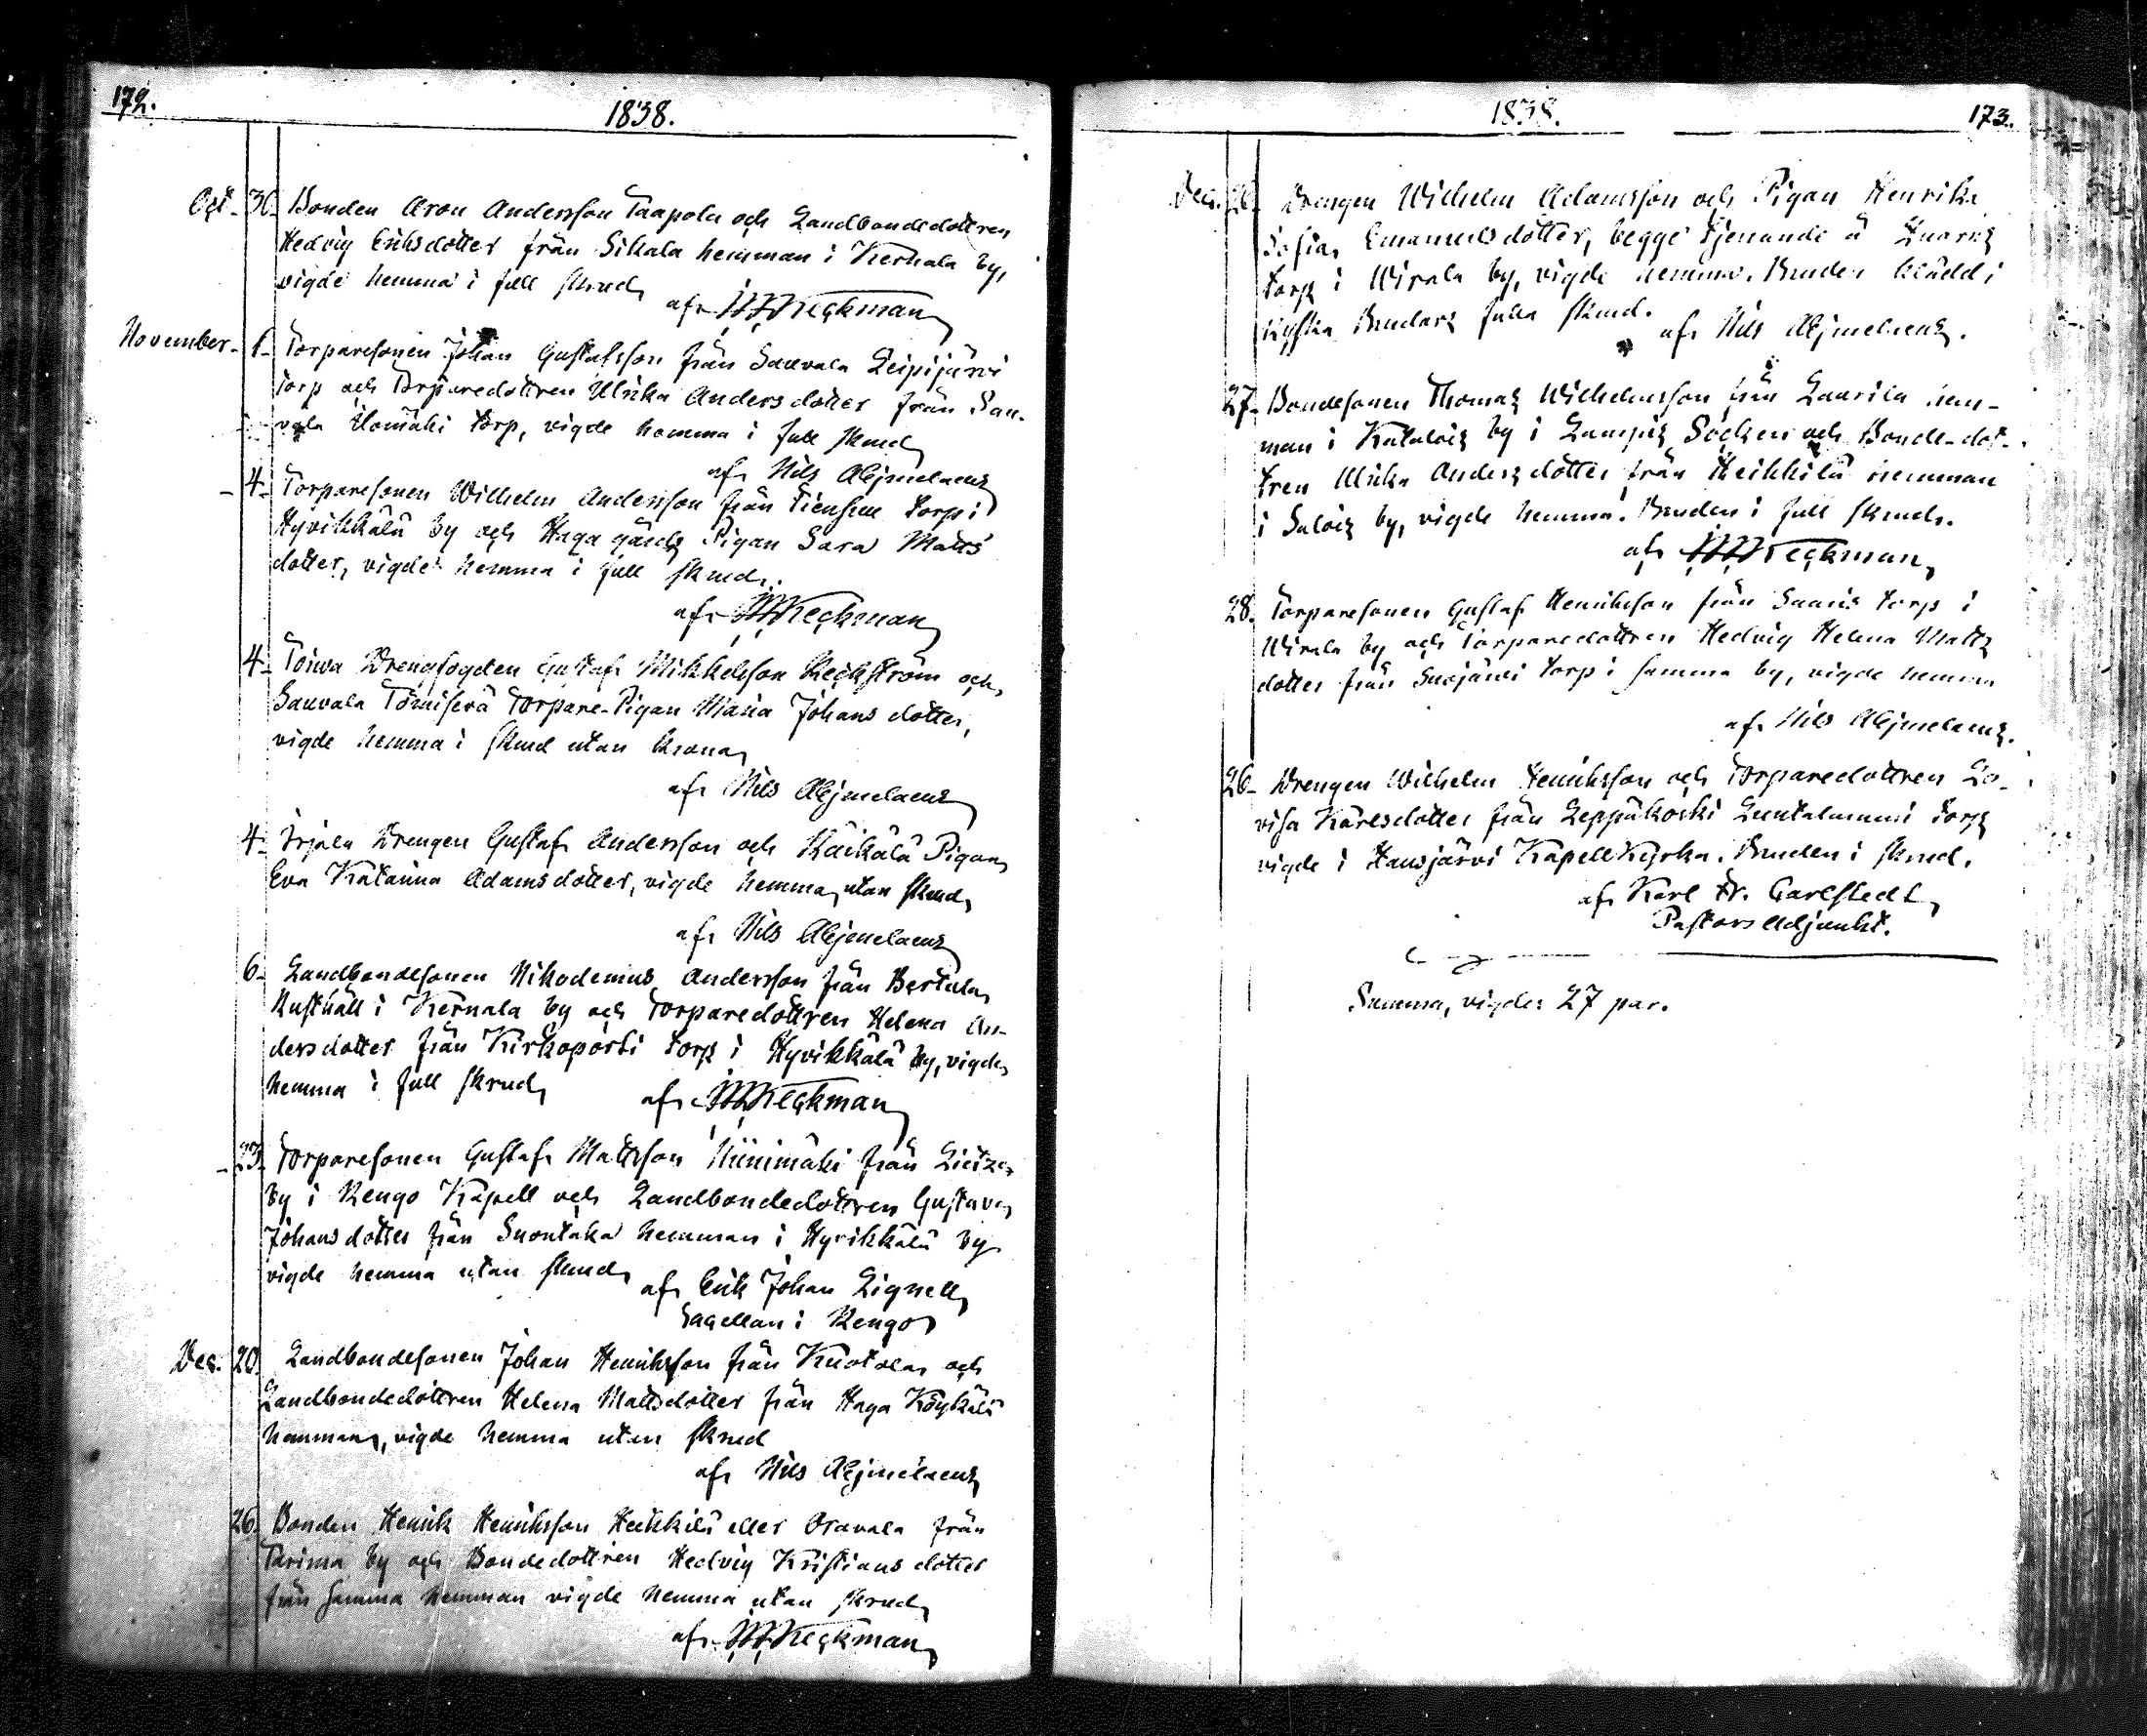 172.
1838.
Oct. 30. Bonden Aron Andersson Taapola och Landbondedottren
Hedvig Eriksdotter från Sikala hemman i Kernala by,
vigde hemma i full skrud
af Keckman
November. 1. Torparesonen Johan Gustafsson från Sauvala Leipijärvi
torp och Torparedottren Ulrika Andersdotter från Sau-
vala torp, vigde hemma i full skrud
af Nils Abjmelaeus
4. Torparesonen Wilhelm Andersson från torp i
Hyvikkälä by och Haga gårds Pigan Sara Matts
dotter, vigde hemma i full skrud.
af Keckman
4. Toiwa Drengfogden Gustaf Mikkelsson och
Sauvala Torpare-Pigan Maria Johansdotter,
vigde hemma i skrud utan krona
af Nils Abjmelaeus
4. Irjala Drengen Gustaf Andersson och Räikälä Pigan
Eva Katarina Adamsdotter, vigde hemma utan skrud,
af Nils Abjmelaeus
6. Landbondesonen Nikodemus Andersson från Bertula
Rusthåll i Kernala by och Torparedottren Helena An-
dersdotter från Kirkoporti torp i Hyvikkälä by, vigde
hemma i full skrud,
af Keckman
23. Torparesonen Gustaf Mattsson Niinimäki från
by i Rengo Kapell och Landbondedottren Gustava
Johansdotter från Suontaka hemman i Hyvikkälä by
vigde hemma utan skrud
af Erik Johan Lignell
Sacellan i Rengo
Dec. 20. Landbondesonen Johan Henriksson från och
Landbondedottren Helena Mattsdotter från Haga Köykälä
hemman, vigde hemma utan skrud
af Nils Abjmelaeus
26. Bonden Henrik Henriksson Heikkilä eller Oravala från
Tarima by och Bondedottren Hedvig Kristiansdotter
från samma hemman vigde hemma utan skrud,
af Keckman
1838.
173.
Dec. 26. Drengen Wilhelm Adamsson och Pigan Henrika
Sofia Emanuelsdotter, begge tjenande å
torp i Wirala by, vigde hemma. Bruden klädd i
Kyrkans Brudars fulla skrud.
af Nils Abjmelaeus.
27. Bondesonen Thomas Wilhelmsson från Laurila hem-
man i Kataloiz by i Lampis Socken och Bonde-dot-
tren Ulrika Andersdotter från Heikkilä hemman
i Saloiz by, vigde hemma. Bruden i full skrud.
af Keckman
28. Torparesonen Gustaf Henriksson från Saaris torp i
Wirala by och Torparedottren Hedvig Helena Matts
dotter från Suojärvi torp i samma by, vigde hemma
af Nils Abjmelaeus.
26. Drengen Wilhelm Henriksson och Torparedottren Lo-
visa Karlsdotter från Leppäkoski Luutalammi torp
vigde i Hausjärvi Kapell Kyrka. Bruden i skrud.
af Karl Fr. Carlstedt
Pastors Adjunkt.
Summa, vigde: 27 par.